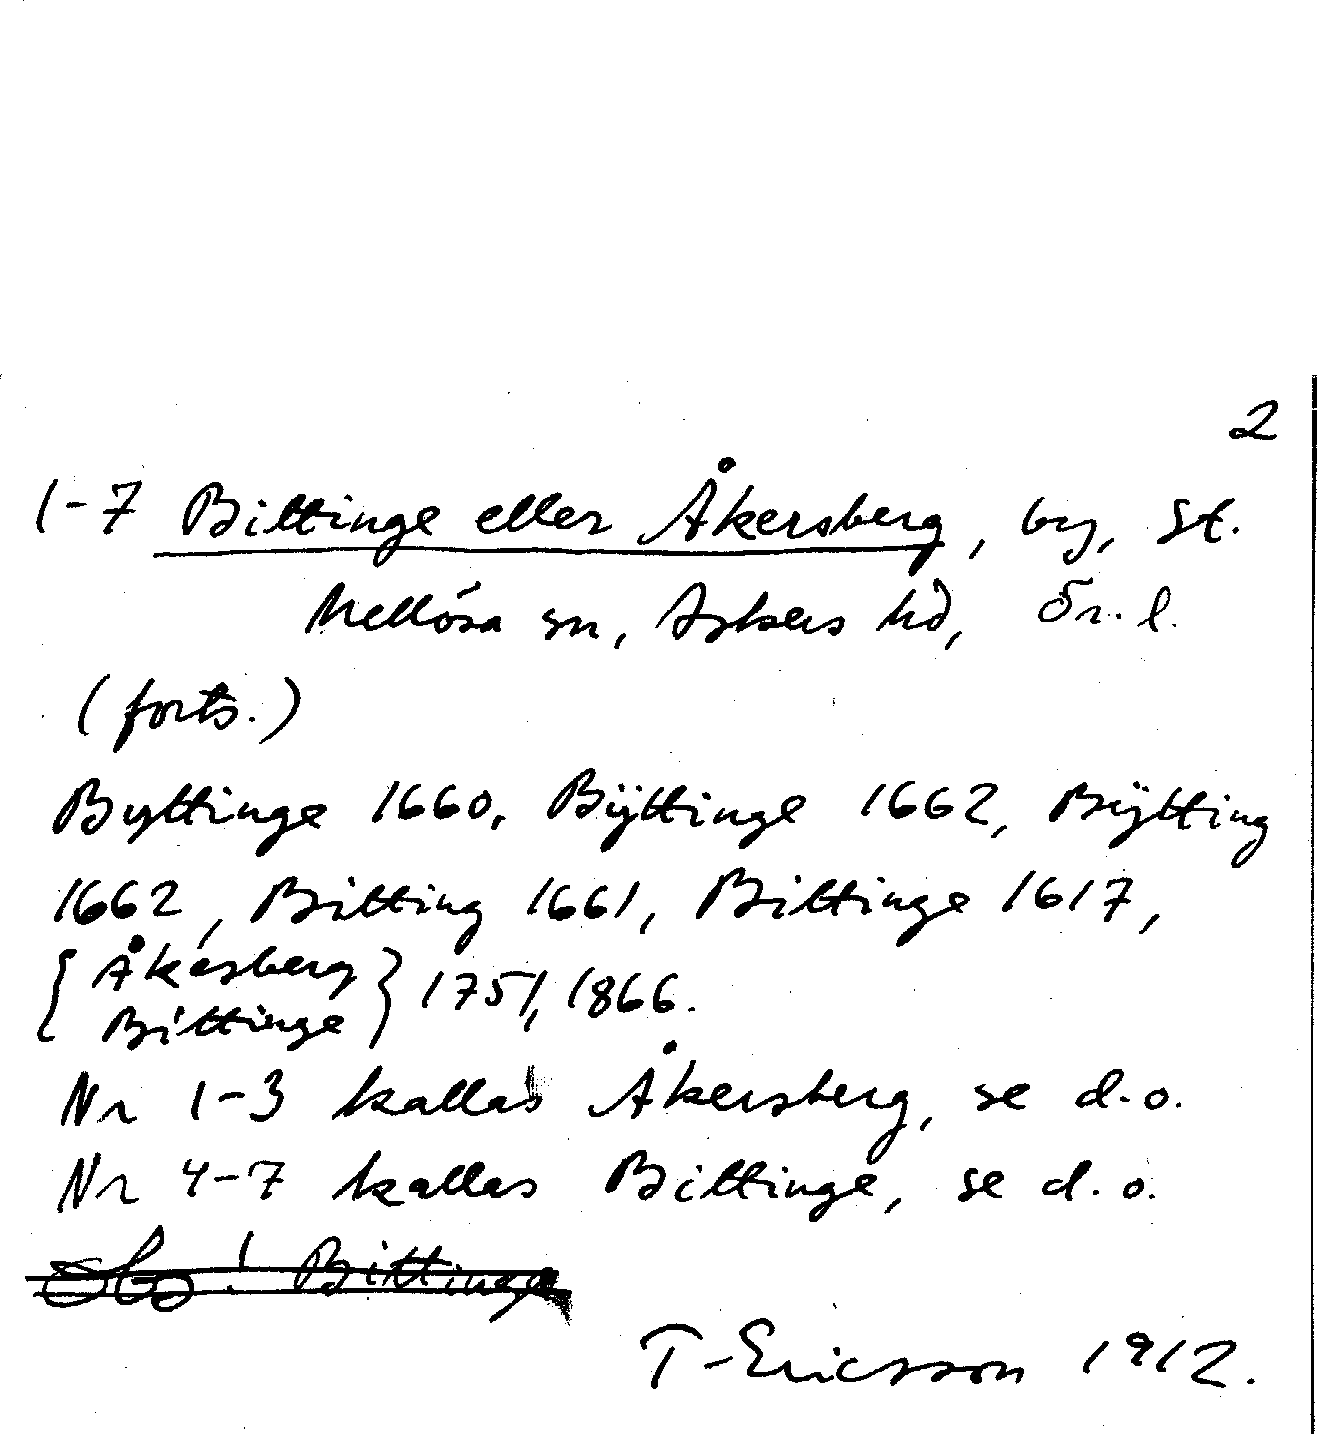 2
1-7 Bittinge eller Åkersberg, by, St.
Mellósa sn, Askers hd, Ör. l.
(forts.)
Byttinge 1660, Bÿttinge 1662, Bÿtting
1662, Bitting 1661, Bittinge 1617,
{Åkersberg
Bittinge} 1751, 1866.
Nr 1-3 kallas Åkersberg, se d.o.
Nr 4-7 kallas Bittinge, se d.o.
Obs! Bittinge
T-Ericsson 1912.